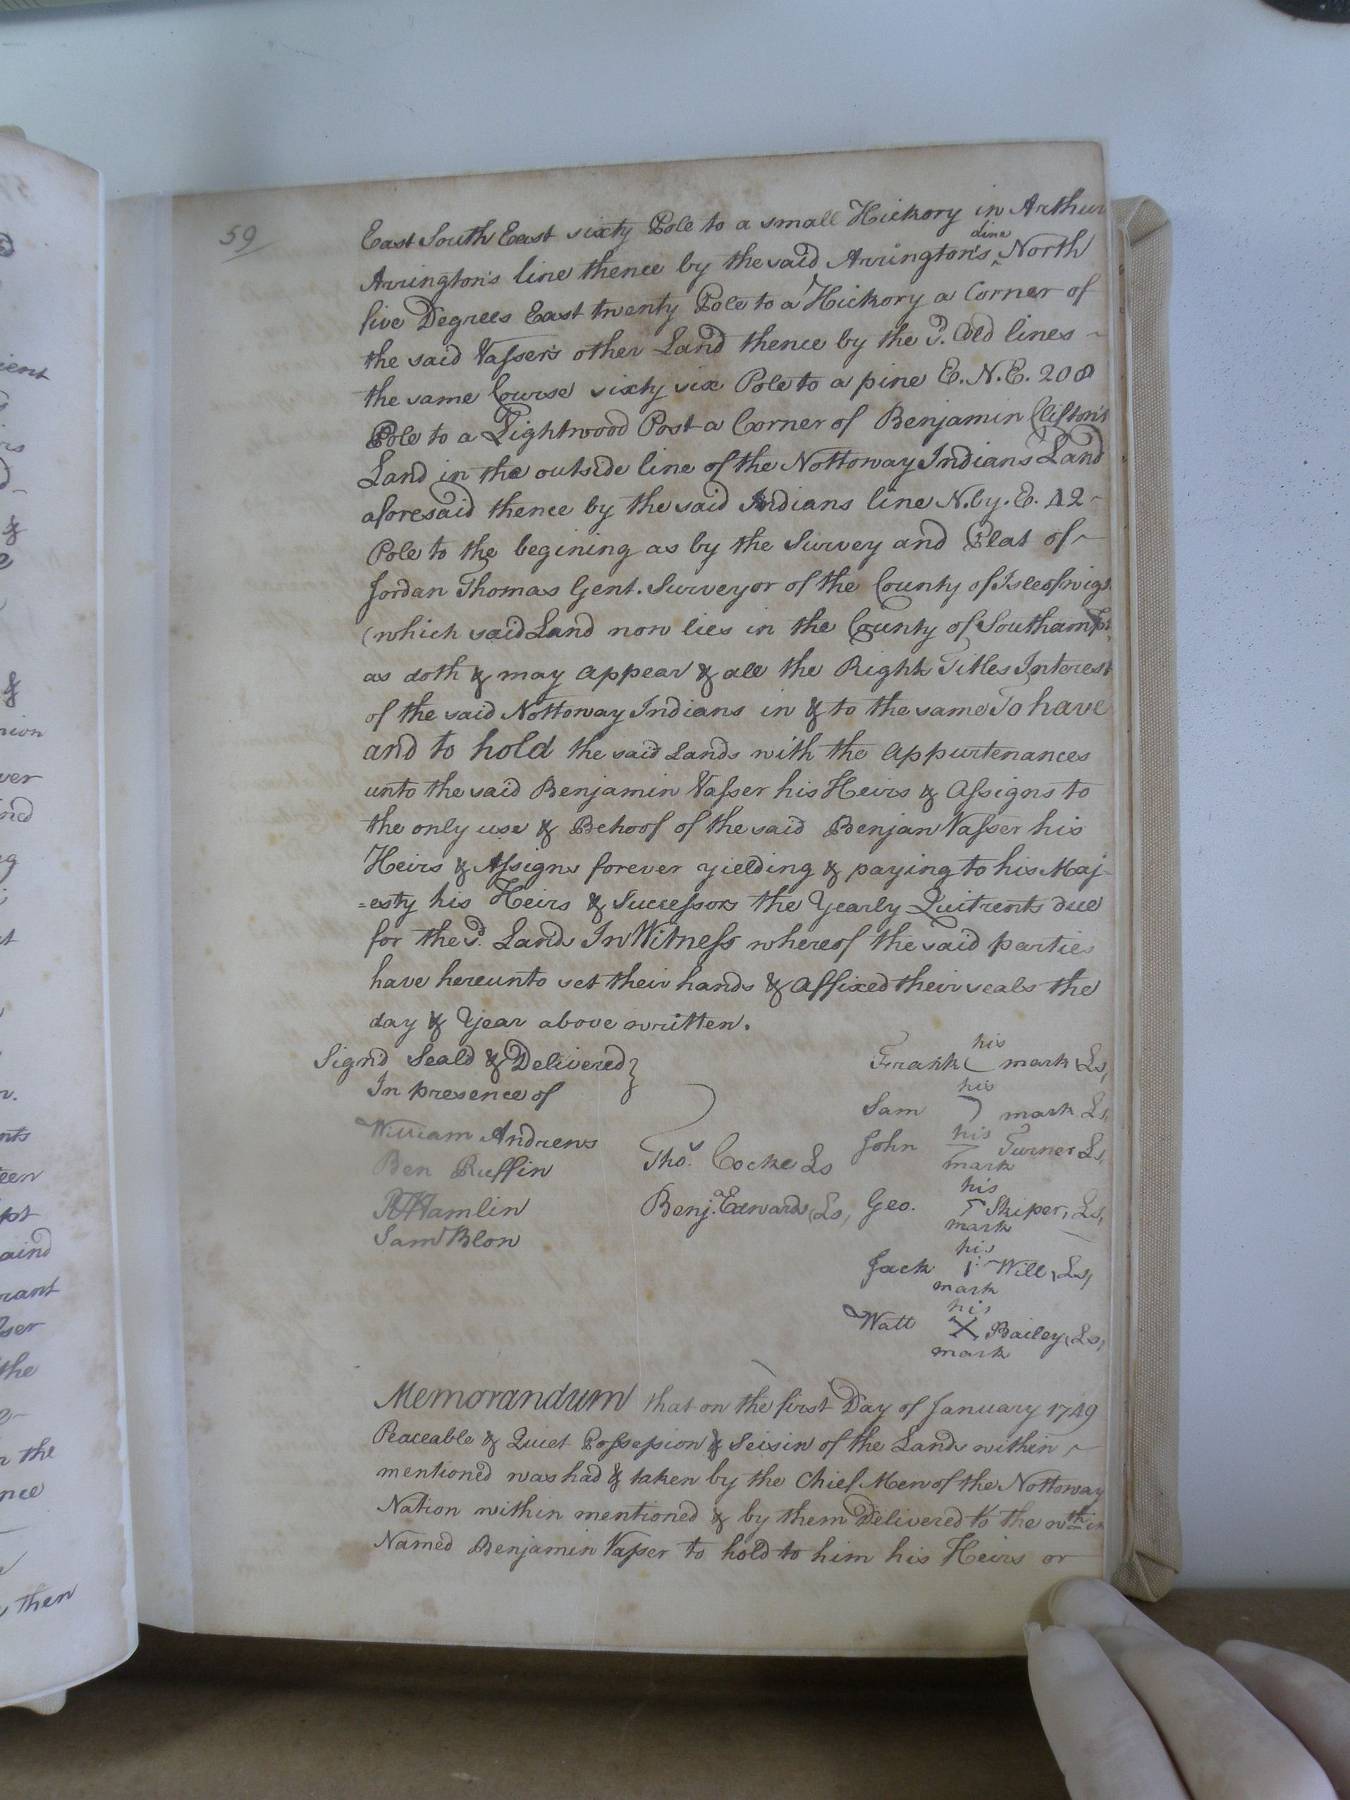 59/
East South East sixty Pole to a small Hickory in Arthur
Arrington's line thence by the said Arrington's line North
five Degrees East twenty Pole to a Hickory a Corner of
the said Vasser's other Land thence by the sd. Old lines
the same Course sixty six Pole to a pine E. N. E. 208
Pole to a Lightwood Post a Corner of Benjamin Clifton's
Land in the outside line of the Nottoway Indians Land
aforesaid thence by the said Indians line N. by. E. 42
Pole to the begining as by the Survey and Plat of
Jordan Thomas Gent. Surveyor of the County of Isleofwigt
(which said Land now lies in the County of
as doth & may appear & all the Right Titles Interest
of the said Nottoway Indians in & to the same To have
and to hold the said Lands with the appurtenances
unto the said Benjamin Vasser his Heirs & Assigns to
the only use & Behoof of the said Benjan Vasser his
Heirs & Assigns forever yielding & paying to his Maj-
=esty his Heirs & Successors the Yearly Quitrents due
for the sd. Lands In Witness whereof the said parties
have hereunto set their hands & affixed their seals the
day & Year above written.
Signd Seald & Delivered }
In presence of
William Andrews
Ben Ruffin
Hamlin
Sam Blow
Thos. Cocke Ls
Benj. Edwards, Ls,
his
Frank mark Ls,
his
Sam mark Ls,
his
John Turner Ls,
mark
his
Geo. Skiper, Ls,
mark
his
Jack Will, Ls,
mark
his
Watt X Bailey, Ls,
mark
Memorandum that on the first Day of January 1749
Peaceable & Quiet Possession & Seisin of the Lands within
mentioned was had & taken by the Chief Men of the Nottoway
Nation within mentioned & by them Delivered to the wthin
Named Benjamin Vasser to hold to him his Heirs or